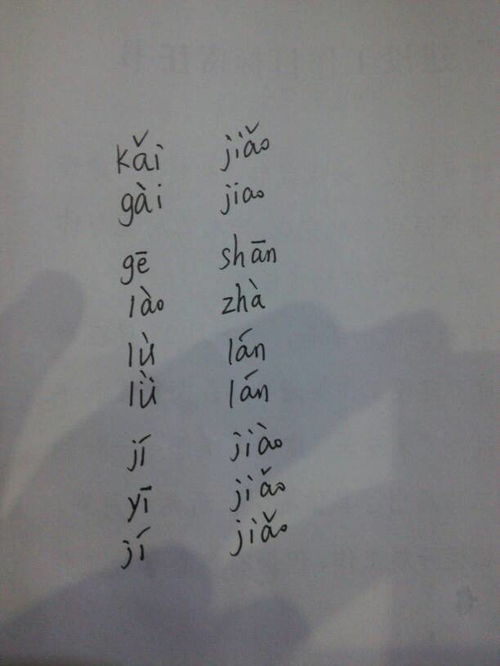 kǎi jiǎo
gài jiao
gē shān
lào zhà
lù lán
lǜ lán
jí jiào
yī jiǎo
jí jiǎo